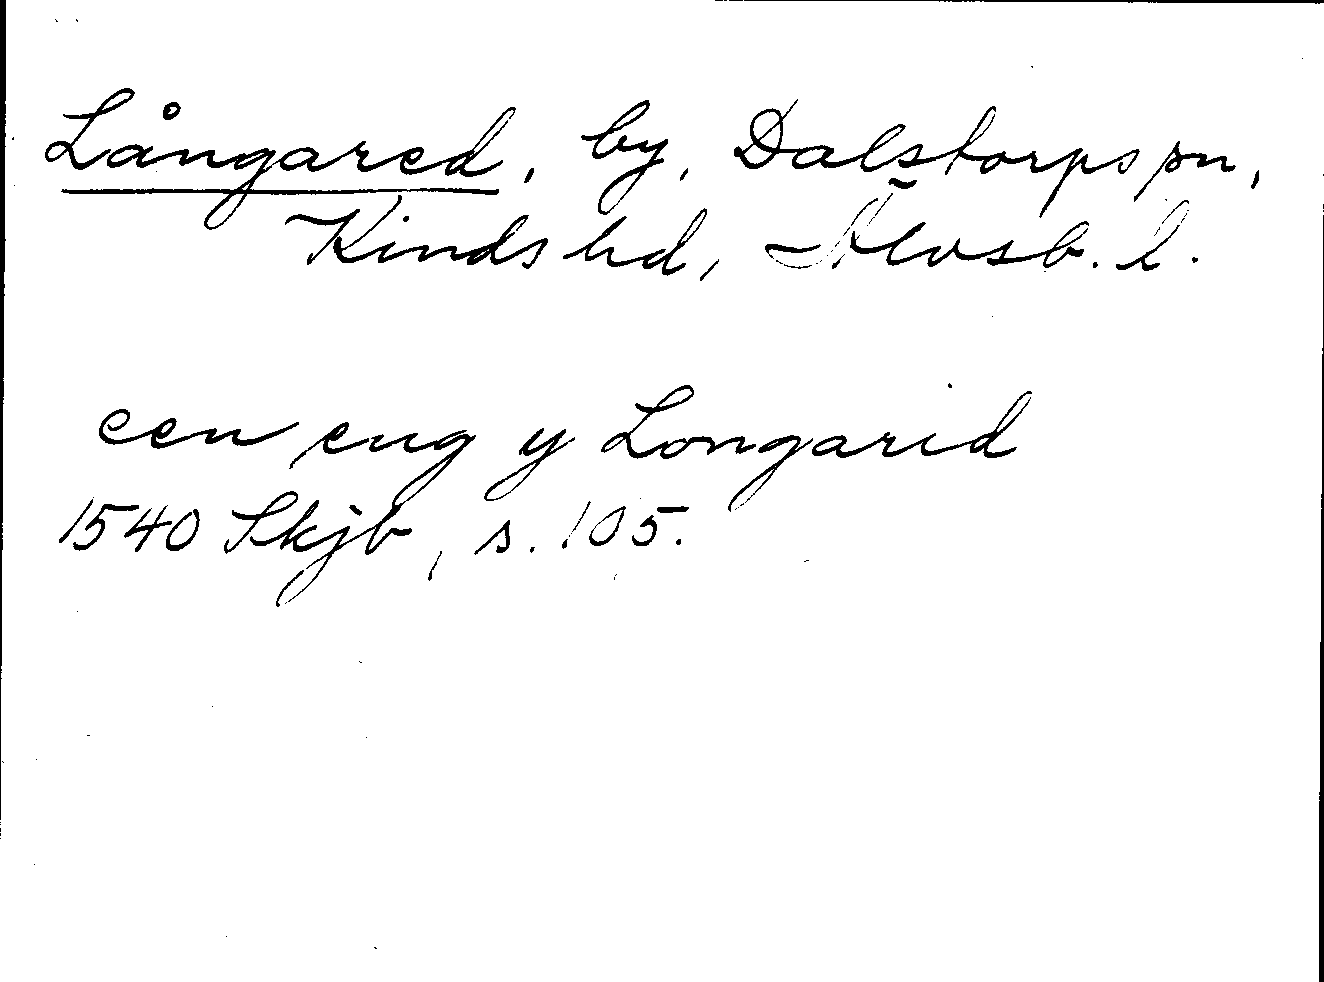 Långared, by, Dalstorps sn,
Kinds hd, Älvsb. l.
een eng y Longarid
1540 Skjb, s. 105.